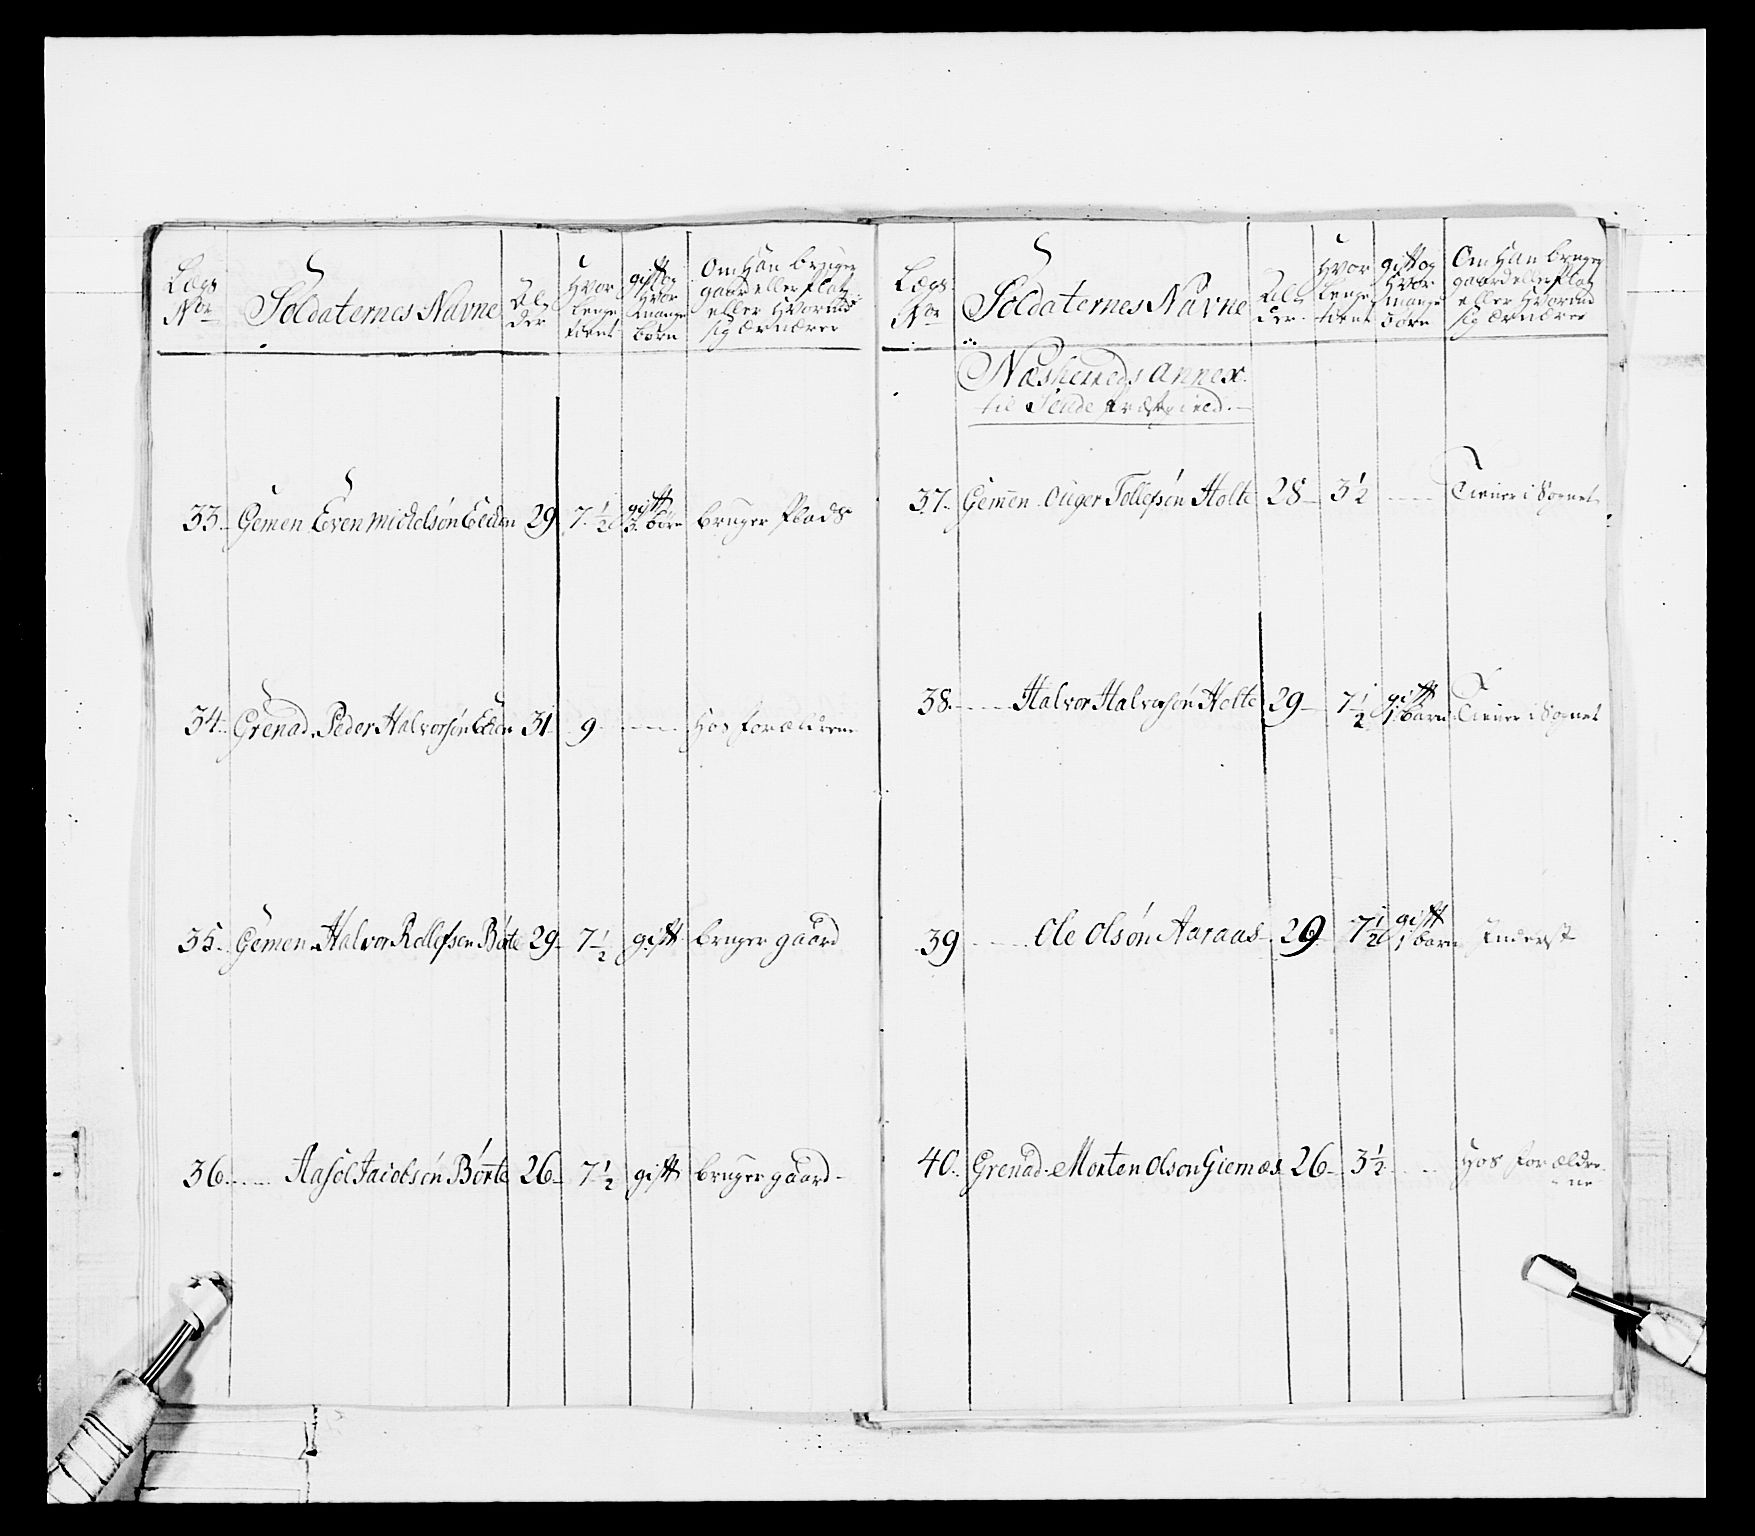 Lægs
Nor
Soldaternes Navne
Al-
der
Hvor
lenge
tient
gift og
Hvor
mange
børn
Om Han bruger
gaard eller Plats
eller Hvormed
sig ernærer
33. Gemen Even Eiden 29 7 1/2 gift 3 børn bruger Plads
34. Grenad. Peder Halvorsøn Eiden 31 9 - Hos forældrene
35. Gemen Halvor Rollefsen Børte 29 7 1/2 gift bruger gaard
36. - Aasol Jacobsøn Børte 26 7 1/2 gift bruger gaard
Lægs
Nor
Soldaternes Navne
Al-
der
Hvor
lenge
tient
gift og
Hvor
mange
børn
Om Han bruger
gaard eller Plats
eller Hvormed
sig ernærer
Næsherreds Annex
til Præstegield.
37. Gemen Tollefsøn Holte 28 3 1/2 - Tiener i Sognet
38. - Halvor Halvorsøn Holte 29 7 1/2 gift 1 barn Tiener i Sognet
39 - Ole Olsøn Aaraas 29 7 1/2 gift 1 barn Inderst
40. Grenad. Morten Olson 26 3 1/2 - Hos forældre-
ne